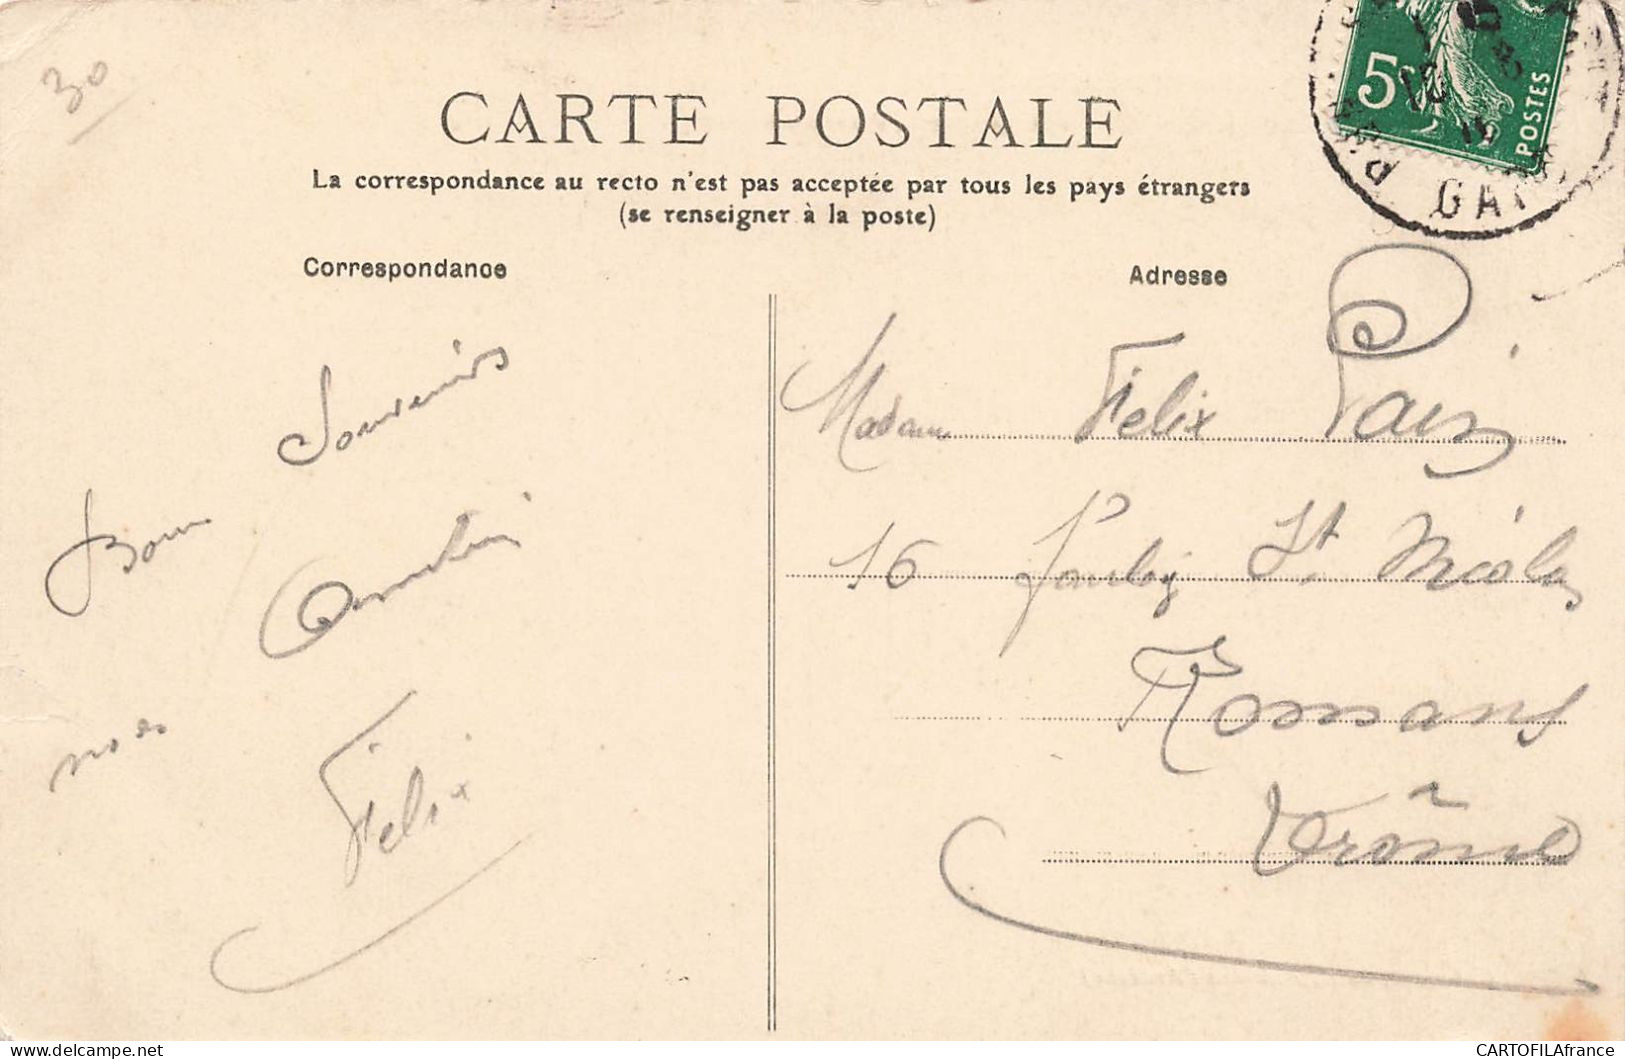 30
CARTE POSTALE
La correspondance au recto n'est pas acceptée par tous les pays étrangers
(se renseigner à la poste)
Correspondance
Adresse
5c
POSTES
GA
Bons Souvenirs
Félix
Madame Félix
16 Faubg St Nicolas
Romans
Drôme
CARTOFILAfrance